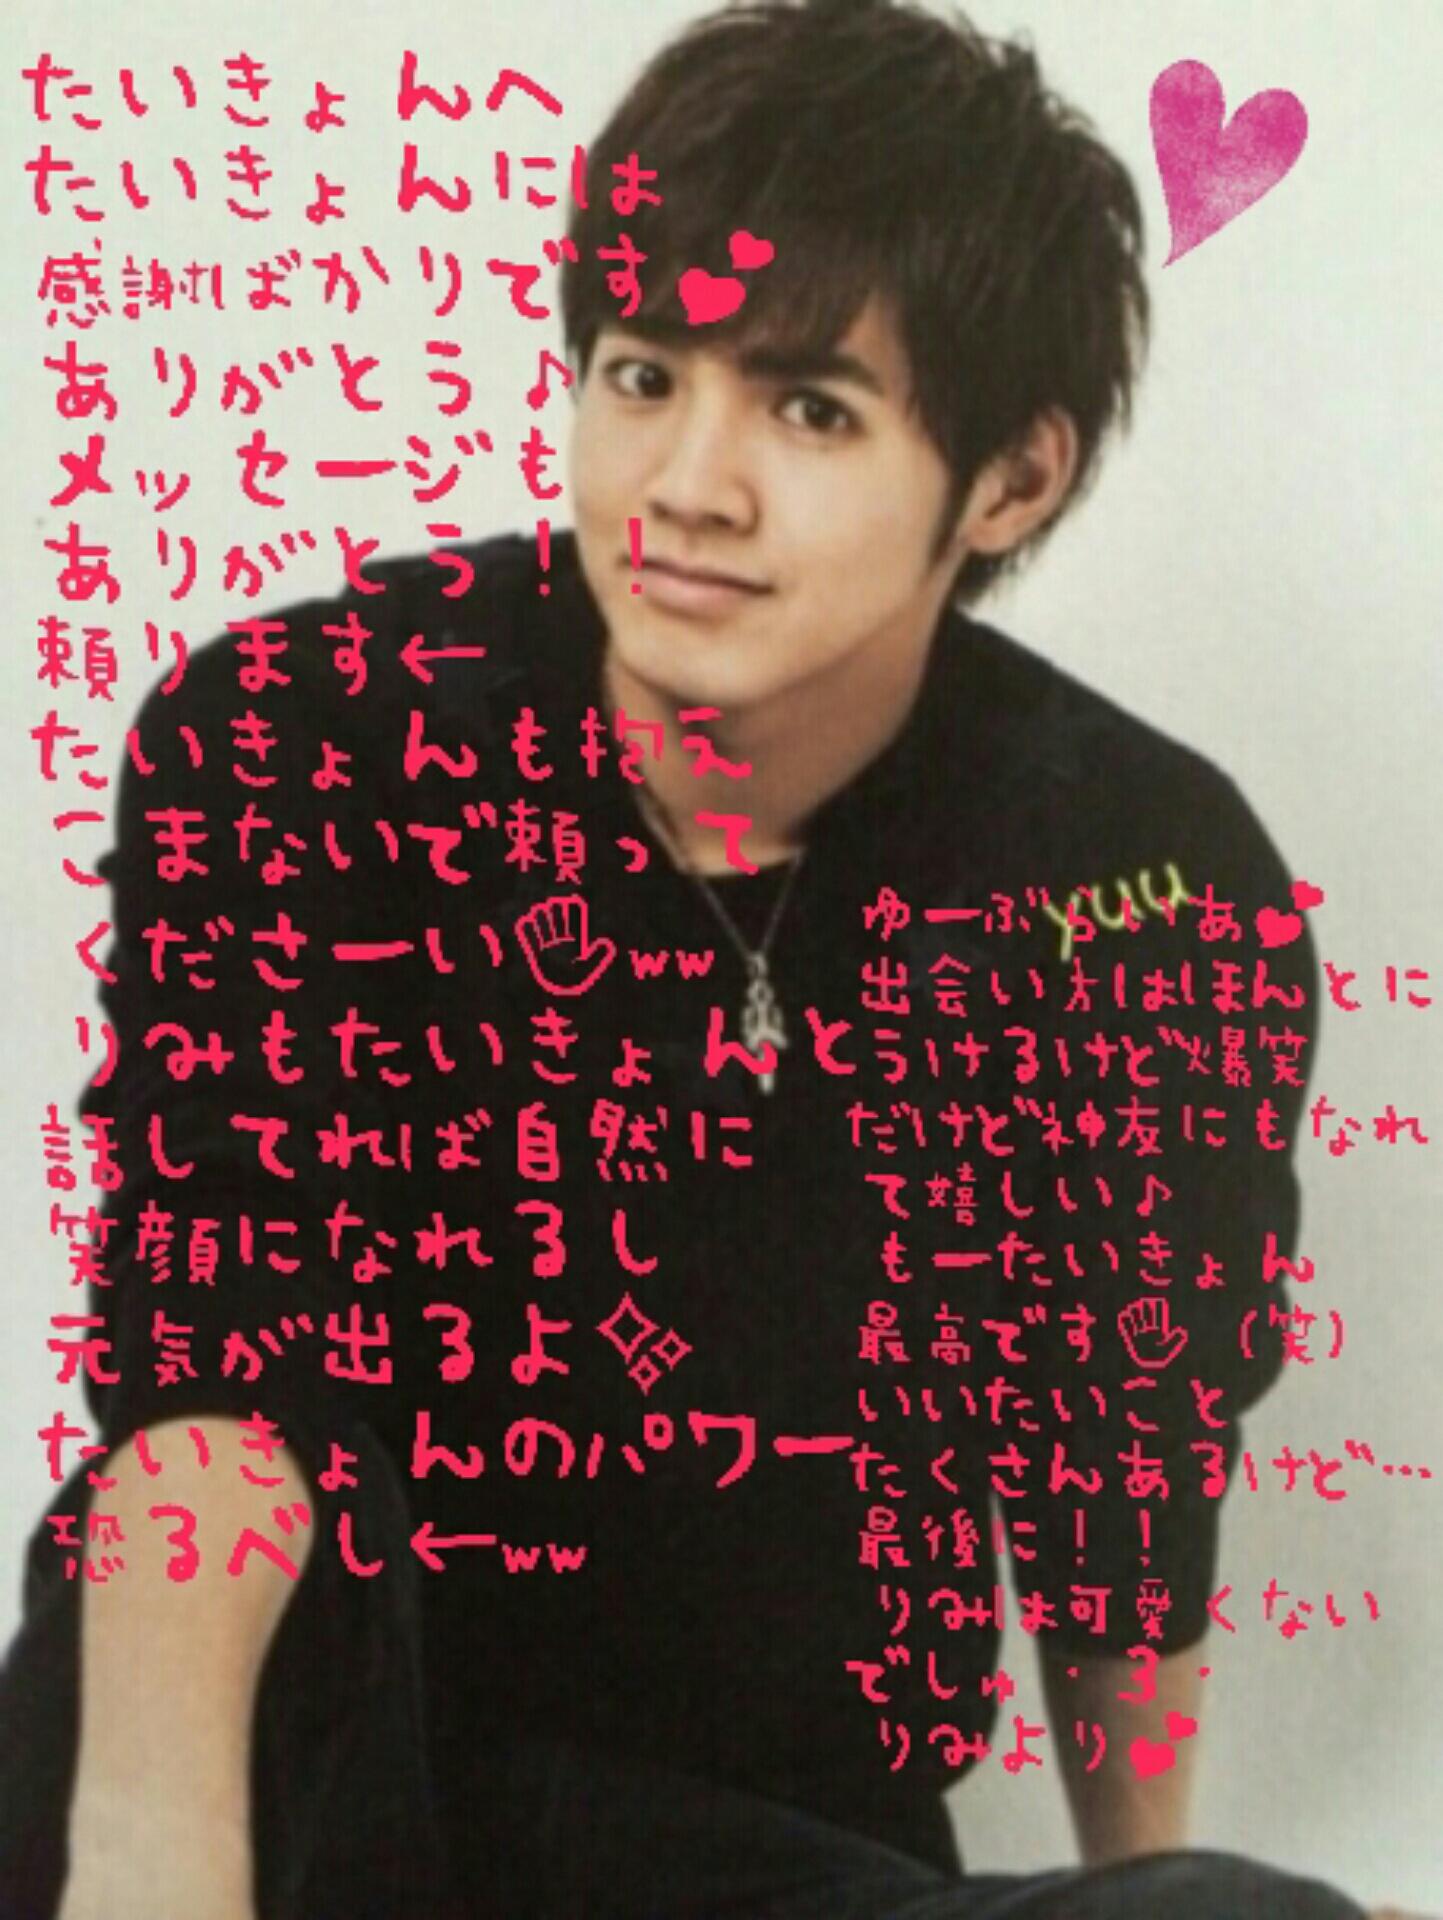 たいきょんへ
たいきょんには
感謝ばかりです💕
ありがとう♪
メッセージも
ありがとう！！
頼ります←
たいきょんも抱え
こまないで頼って
くださーい✋ww
りみもたいきょんと
話してれば自然に
笑顔になれるし
元気が出るよ✨
たいきょんのパワー
恐るべし←ww
yuu
ゆーぶ らいあ💕
出会い方はほんとに
うけるけど爆笑
だけど神友にもなれ
て嬉しい♪
もーたいきょん
最高です✋(笑)
いいたいこと
たくさんあるけど…
最後に！！
りみは可愛くない
でしゅ・3・
りみより💕